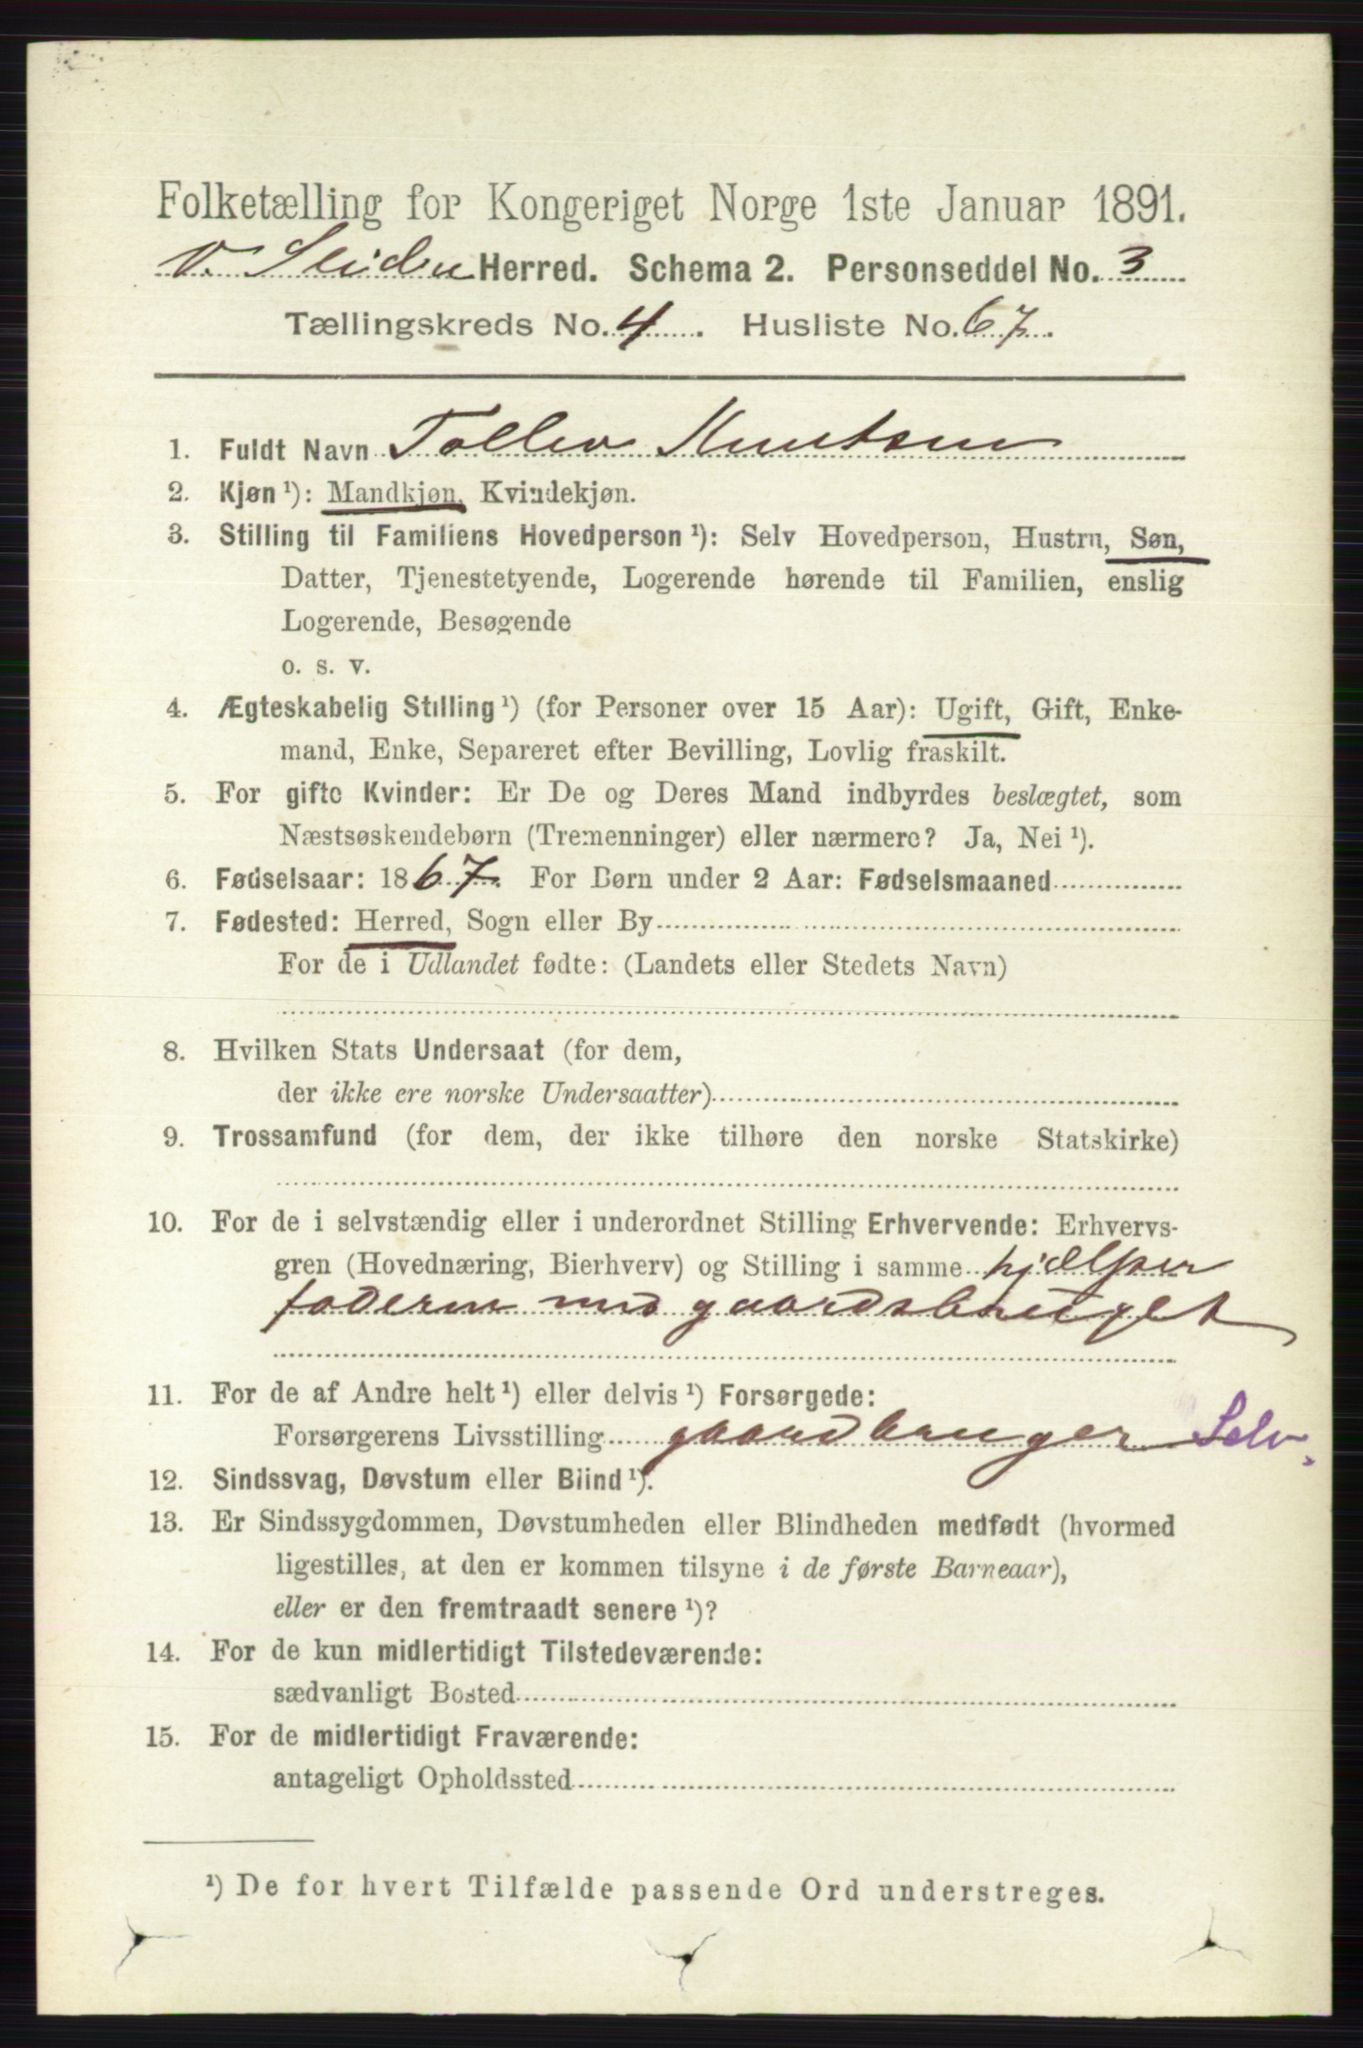 Folketælling for Kongeriget Norge 1ste Januar 1891.
V. Slidre Herred. Schema 2. Personseddel No. 3
Tællingskreds No. 4. Husliste No. 67.
1. Fuldt Navn Tollev Knutsen
2. Kjøn ¹): Mandkjøn, Kvindekjøn.
3. Stilling til Familiens Hovedperson ¹): Selv Hovedperson, Hustru, Søn,
Datter, Tjenestetyende, Logerende hørende til Familien, enslig
Logerende, Besøgende
o. s. v.
4. Ægteskabelig Stilling ¹) (for Personer over 15 Aar): Ugift, Gift, Enke-
mand, Enke, Separeret efter Bevilling, Lovlig fraskilt.
5. For gifte Kvinder: Er De og Deres Mand indbyrdes beslægtet, som
Næstsøskendebørn (Tremenninger) eller nærmere? Ja, Nei ¹).
6. Fødselsaar: 1867. For Børn under 2 Aar: Fødselsmaaned
7. Fødested: Herred, Sogn eller By
For de i Udlandet fødte: (Landets eller Stedets Navn)
8. Hvilken Stats Undersaat (for dem,
der ikke ere norske Undersaatter)
9. Trossamfund (for dem, der ikke tilhøre den norske Statskirke)
10. For de i selvstændig eller i underordnet Stilling Erhvervende: Erhvervs-
gren (Hovednæring, Bierhverv) og Stilling i samme hjælper
faderen med gaardsbruget
11. For de af Andre helt ¹) eller delvis ¹) Forsørgede:
Forsørgerens Livsstilling gaardbruger Selv.
12. Sindssvag, Døvstum eller Blind ¹).
13. Er Sindssygdommen, Døvstumheden eller Blindheden medfødt (hvormed
ligestilles, at den er kommen tilsyne i de første Barneaar),
eller er den fremtraadt senere ¹)?
14. For de kun midlertidigt Tilstedeværende:
sædvanligt Bosted
15. For de midlertidigt Fraværende:
antageligt Opholdssted
¹) De for hvert Tilfælde passende Ord understreges.